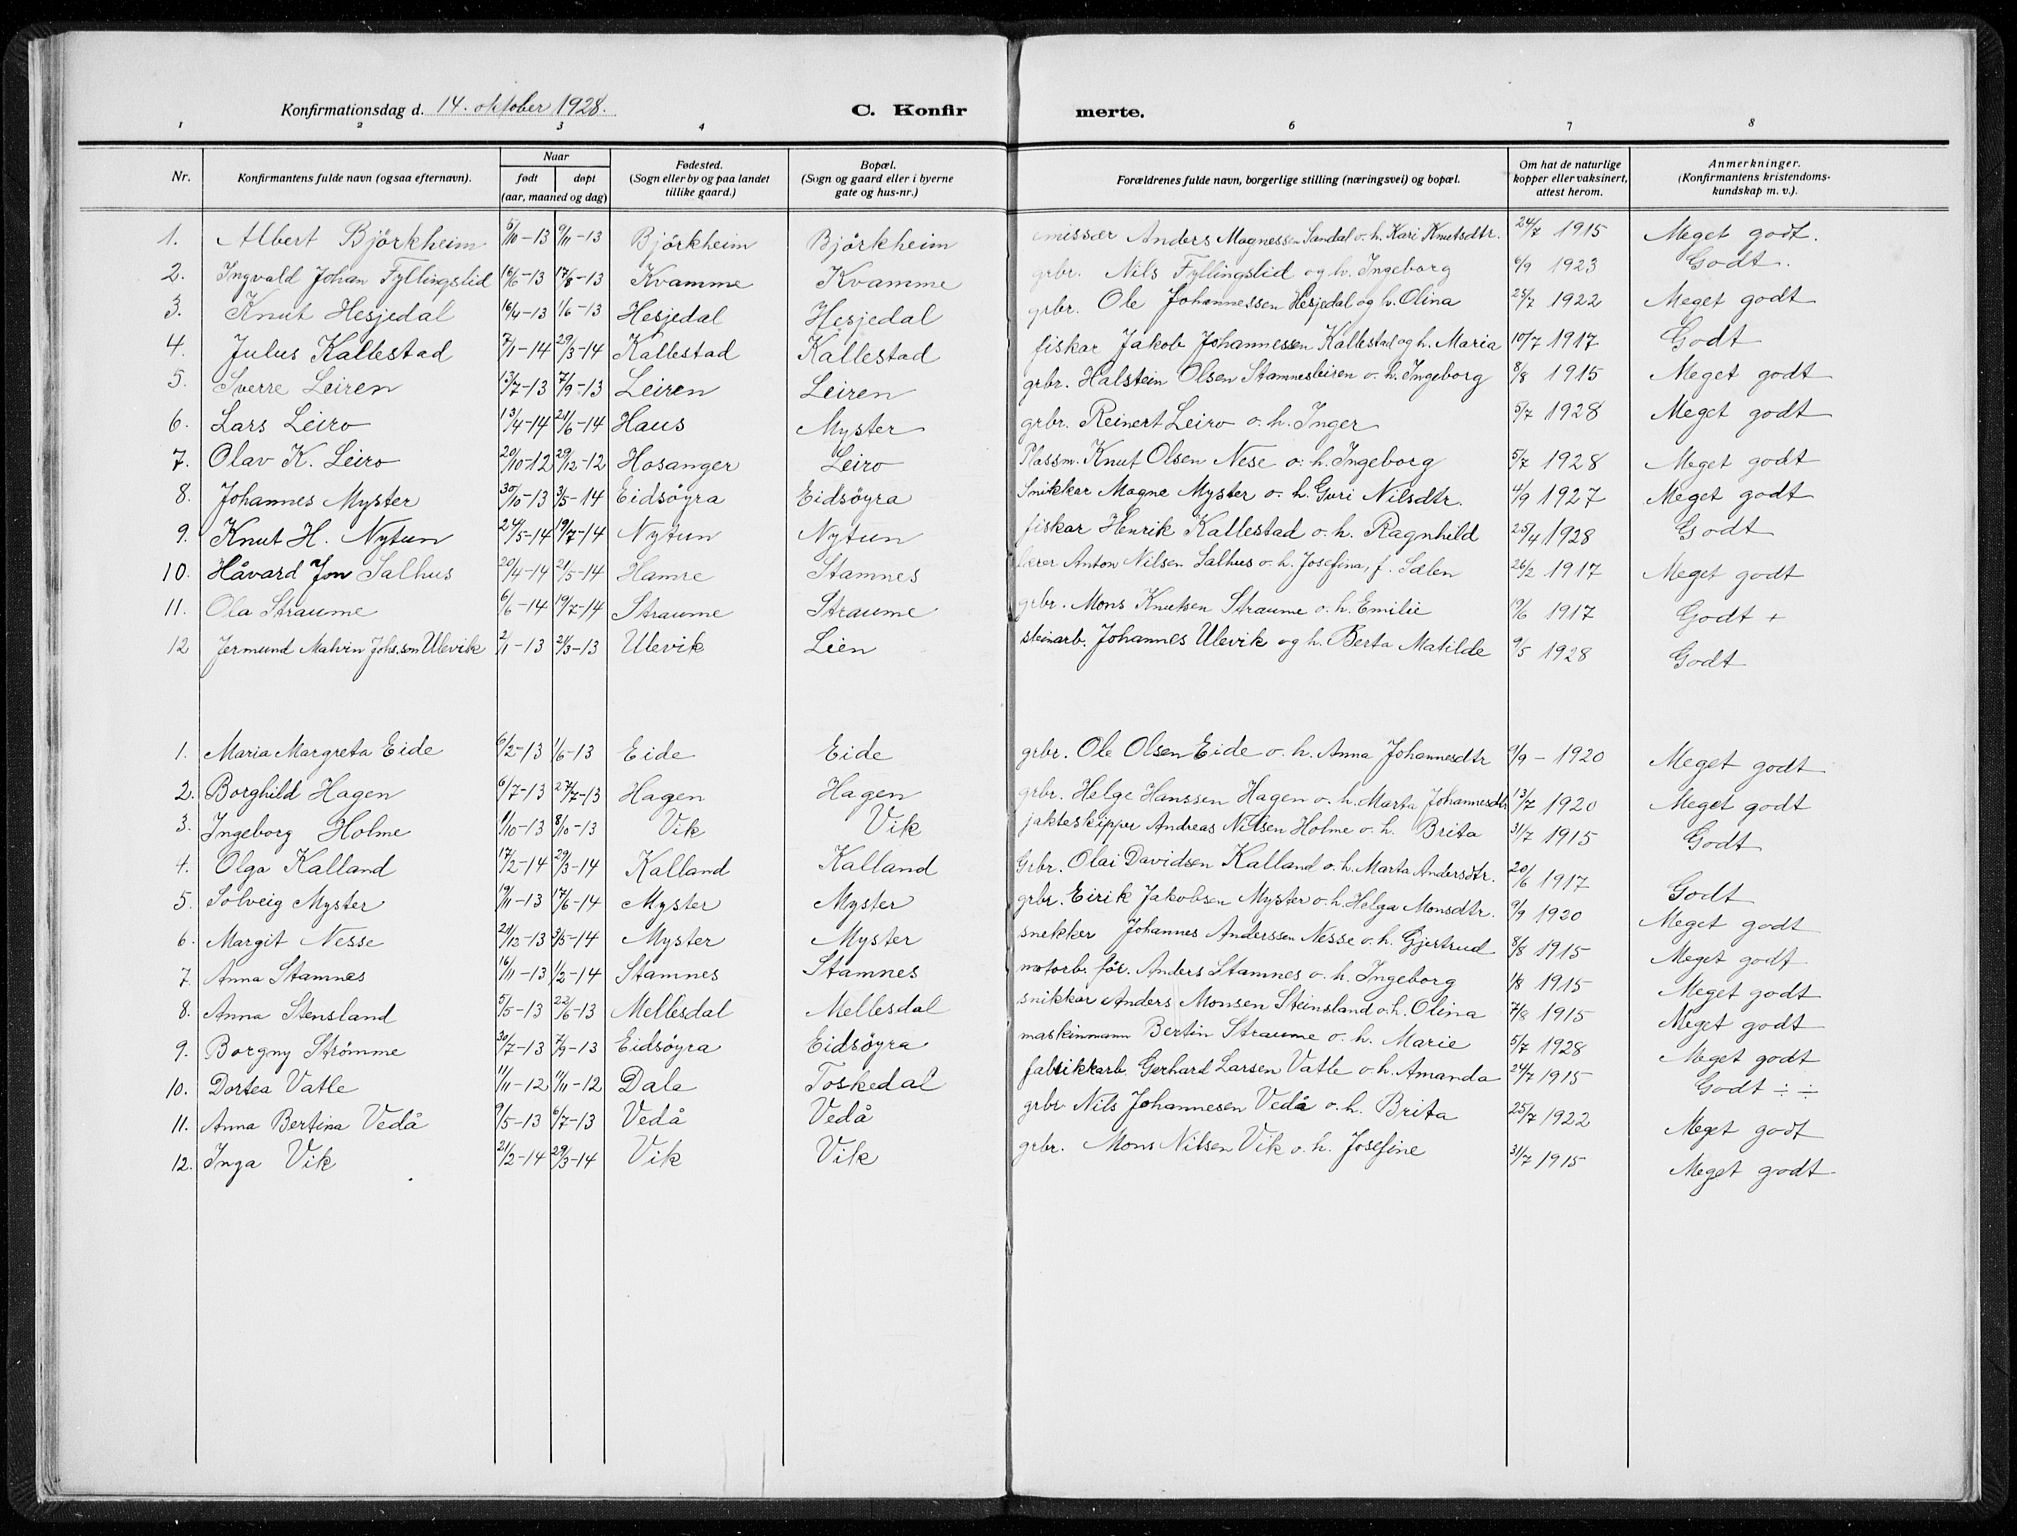 Konfirmationsdag d. 14. oktober 1928. C. Konfir merte.
1 2 3 4 6 7 8
Nr. Konfirmantens fulde navn (ogsaa efternavn). Naar født døpt (aar, maaned og dag) Fødested. (Sogn eller by og paa landet tillike gaard.) Bopæl. (Sogn og gaard eller i byerne gate og hus-nr.) Forældrenes fulde navn, borgerlige stilling (næringsvei) og bopæl. Om hat de naturlige kopper eller vaksinert, attest herom. Anmerkninger. (Konfirmantens kristendoms-kundskap m. v.).
1. Albert Björkheim 5/10-13 9/11-13 Björkheim Björkheim emissær Anders Magnessen Sandal o. h. Kari Knutsdtr. 24/7 1915 Meget godt.
2. Ingvald Johan Fyllingslid 16/6-13 17/8-13 Kvamme Kvamme grbr. Nils Fyllingslid og h. Ingeborg 6/9 1923 Godt.
3. Knut Hesjedal 16/4-13 1/6-13 Hesjedal Hesjedal grbr. Ole Johannessen Hesjedal og h. Olina 25/7 1922 Meget godt
4. Julus Kallestad 7/1-14 29/3-14 Kallestad Kallestad fiskar Jakob Johannessen Kallestad og h. Maria 10/7 1917 Godt
5. Sverre Leiren 13/7-13 7/9-13 Leiren Leiren grbr. Halstein Olsen Stamnesleiren o. h. Ingeborg 8/8 1915 Meget godt
6. Lars Leiro 13/4-14 21/6-14 Haus Myster grbr. Reinert Leiro o. h. Inger 5/7 1928 Meget godt
7. Olav K. Leiro 20/10-12 29/12-12 Hosanger Leiro Plassm. Knut Olsen Nese o. h. Ingeborg 5/7 1928 Meget godt
8. Johannes Myster 30/10-13 3/5-14 Eidsöyra Eidsöyra Snikkar Magne Myster o. h. Guri Nilsdtr. 4/9 1927 Meget godt
9. Knut H. Nytun 24/5-14 19/7-14 Nytun Nytun fiskar Henrik Kallestad o. h. Ragnhild 25/4 1928 Godt
10. Håvard Jon Salhus 20/4-14 21/5-14 Hamre Stamnes lærer Anton Nilsen Salhus o. h. Josefina, f. Sælen 26/2 1917 Meget godt
11. Ola Straume 6/6-14 19/7-14 Straume Straume grbr. Mons Knutsen Straume o. h. Emilie 19/6 1917 Godt +
12 Jermund Malvin Johs.son Ulevik 2/1-13 24/3-13 Ulevik Leien steinarb. Johannes Ulevik og h. Berta Matilde 9/5 1928 Godt
1. Maria Margreta Eide 6/2-13 1/6-13 Eide Eide grbr. Ole Olsen Eide o. h. Anna Johannesdtr 9/9 - 1920 Meget godt
2. Borghild Hagen 6/7-13 27/7-13 Hagen Hagen grbr. Helge Hanssen Hagen o. h. Marta Johannesdtr 13/7 1920 Meget godt
3. Ingeborg Holme 1/10-13 8/10-13 Vik Vik jakteskipper Andreas Nilsen Holme o. h. Brita 31/7 1915 Godt
4. Olga Kalland 17/2-14 29/3-14 Kalland Kalland Grbr. Olai Davidsen Kalland o. h. Marta Andersdtr. 20/6 1917 Godt
5. Solveig Myster 19/11-13 17/6-14 Myster Myster grbr. Eirik Jakobsen Myster o. h. Helga Monsdtr. 9/9 1920 Meget godt
6. Margit Nesse 20/12-13 3/5-14 Myster Myster snekker Johannes Anderssen Nesse o. h. Gjertrud 8/8 1915 Meget godt
7. Anna Stamnes 16/11-13 1/2-14 Stamnes Stamnes motorb. för. Anders Stamnes o. h. Ingeborg 1/8 1915 Meget godt
8. Anna Stensland 5/5-13 22/6-13 Mellesdal Mellesdal snikkar Anders Monsen Steinsland o. h. Olina 7/8 1915 Meget godt
9. Borgny Strömme 30/7-13 7/9-13 Eidsöyra Eidsöyra maskinmann Bertin Straume o. h. Marie 5/7 1928 Meget godt
10. Dortea Vatle 11/11-12 11/11-12 Dale Toskedal fabrikkarb. Gerhard Larsen Vatle o. h. Amanda 24/7 1915 Godt ÷ ÷
11. Anna Bertina Vedå 9/5-13 6/7-13 Vedå Vedå grbr Nils Johannesen Vedå o. h. Brita 25/7 1922 Meget godt
12. Inga Vik 21/2-14 29/3-14 Vik Vik grbr. Mons Nilsen Vik o. h. Josefine 31/7 1915 Meget godt